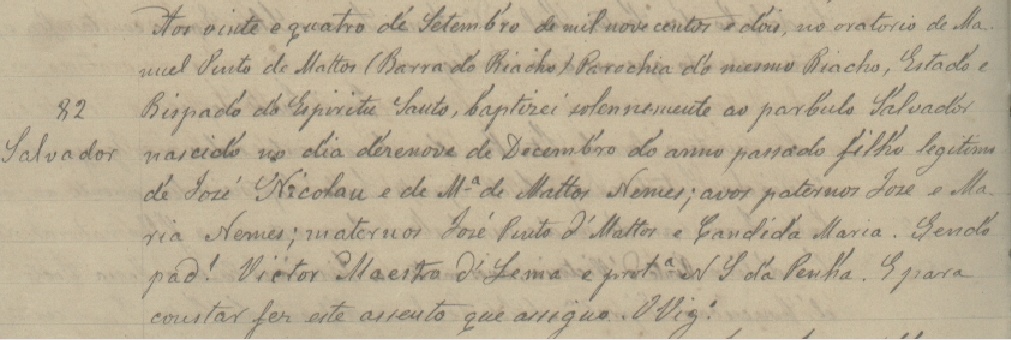 Aos vinte e quatro de Setembro de mil nove centos e dois, no oratorio de Ma-
nuel Pinto de Mattos (Barra do Riacho) Parochia do mesmo Riacho, Estado e
82 Bispado do Espiritu Santo, baptizei solennemente ao parbulo Salvador
Salvador nascido no dia dezenove de Decembro do anno passado filho legitimo
de José Nicolau e de Mª de Mattos Nemes; avos paternos José e Ma-
ria Nemes; maternos José Pinto d'Mattos e Candida Maria. Sendo
pad! Victor Maestro di Lema e protª N S da Penha. E para
constar fez este assento que assigno. O Vigº